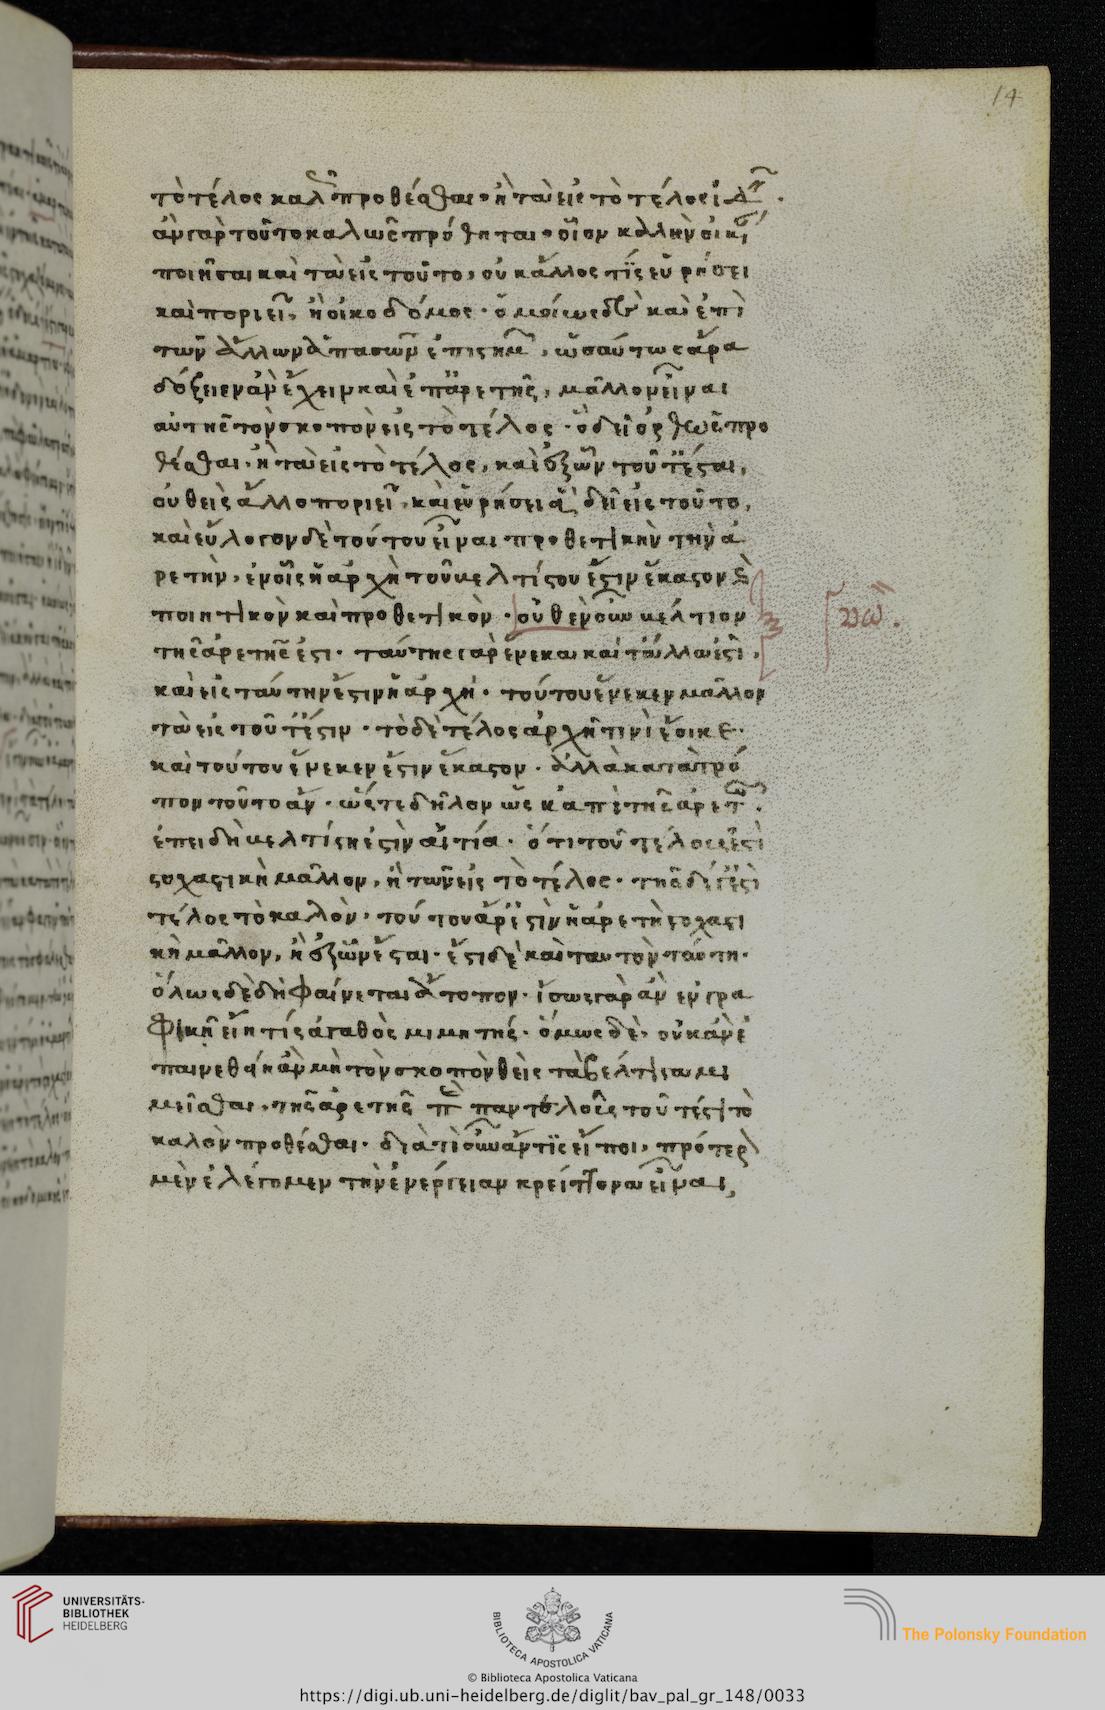 14
τὸ τέλος καλῶς προθέσθαι· ἢ τὰ εἰς τὸ τέλος; ἰατ
ἂν γὰρ τοῦτο καλῶς πρόθηται· οἷον καλὴν οἰκί
ποιῆσαι καὶ τὰ εἰς τοῦτο, οὐκ ἄλλος τίς εὑρήσει
καὶ ποριεῖ, ἢ οἰκοδόμος· ὁμοίως δὲ καὶ ἐπὶ
τῶν ἄλλων ἁπασῶν ἐπιστημῶν, ὡσαύτως ἄρα
δόξειεν ἂν ἔχειν καὶ ἐπ' ἀρετῆς, μᾶλλον εἶναι
αὐτῆς τὸν σκοπὸν εἰς τὸ τέλος· ὃ δεῖ ὀρθῶς προ
θέσθαι· ἢ τὰ εἰς τὸ τέλος, καὶ ἐξ ὧν τοῦτ' ἔσται,
οὐθεὶς ἄλλο ποριεῖ, καὶ εὑρήσει ἃ δεῖ εἰς τοῦτο,
καὶ εὔλογον δὲ τούτου εἶναι προθετικὴν τὴν ἀ
ρετὴν, ἐν οἷς ἡ ἀρχὴ τοῦ βελτίστου ἐστὶν ἕκαστον καὶ
ποιητικὸν καὶ προθετικὸν· οὐθὲν οὖν βέλτιον
τῆς ἀρετῆς ἐστι· ταύτης γὰρ ἕνεκα καὶ τἄλλα ἐστὶ,
καὶ εἰς ταύτην ἐστὶν ἡ ἀρχὴ· τούτου ἕνεκεν μᾶλλον
τὰ εἰς τοῦτ' ἐστιν· τὸ δὲ τέλος ἀρχῇ τινὶ ἔοικε·
καὶ τούτου ἕνεκεν ἐστὶν ἕκαστον· ἀλλὰ κατὰ τρό
πον τοῦτο ἂν· ὥστε δῆλον ὡς κἀπὶ τῆς ἀρετῆς·
ἐπειδὴ βελτίστη ἐστὶν αἰτία· ὅτι τοῦ τέλους ἐστὶ
στοχαστικὴ μᾶλλον, ἢ τῶν εἰς τὸ τέλος· τῆς δέ γ' ἐστὶ
τέλος τὸ καλὸν· τούτου ἄρ' ἐστὶν ἡ ἀρετὴ στοχαστι
κὴ μᾶλλον, ἢ ἐξ ὧν ἔσται· ἔστι δὲ καὶ ταυτὸν ταύτη·
ὅλως δὲ δὴ φαίνεται ἄτοπον· ἴσως γὰρ ἂν ἐν γρα
φικῇ εἴη τίς ἀγαθὸς μιμητής· ὅμως δὲ, οὐκ ἂν ἐ
παινεθείη ἂν μὴ τὸν σκοπὸν θεὶς τὰ βέλτιστα μι
μεῖσθαι· τῆς ἀρετῆς παντελῶς τοῦτ' ἐστὶ τὸ
καλὸν προθέσθαι· διὰ τί οὖν ἄν τις εἴποι, πρότερ
μὲν ἐλέγομεν τὴν ἐνέργειαν κρείττονα εἶναι,
UNIVERSITÄTS-
BIBLIOTHEK
HEIDELBERG
BIBLIOTECA APOSTOLICA VATICANA
The Polonsky Foundation
© Biblioteca Apostolica Vaticana
https://digi.ub.uni-heidelberg.de/diglit/bav_pal_gr_148/0033